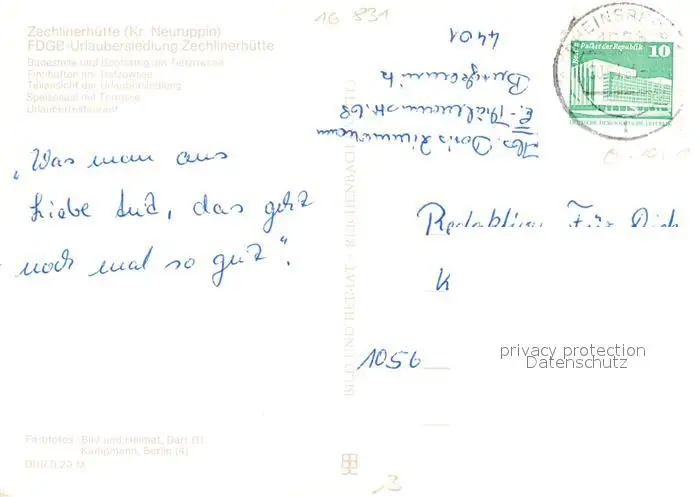 Zechlinerhütte (Kr. Neuruppin)
FDGB-Urlaubersiedlung Zechlinerhütte
Badestelle und Bootssteg am Tietzowsee
Finnhütten am Tietzowsee
Teilansicht der Urlaubersiedlung
Speisesaal mit Terrasse
Urlauberrestaurant
„Was man aus
Liebe tud, das geht
noch mal so gut“.
Farbfotos: Bild und Heimat, Darr (1)
Kampmann, Berlin (4)
BILD UND HEIMAT REICHENBACH
16 831
Abs. Doris Zimmermann
E.-Thälmannstr. 68
4401
Palast der Republik
10
DEUTSCHE DEMOKRATISCHE REPUBLIK
RHEINSBERG
Redaktion Für Dich
K
1056
privacy protection
Datenschutz